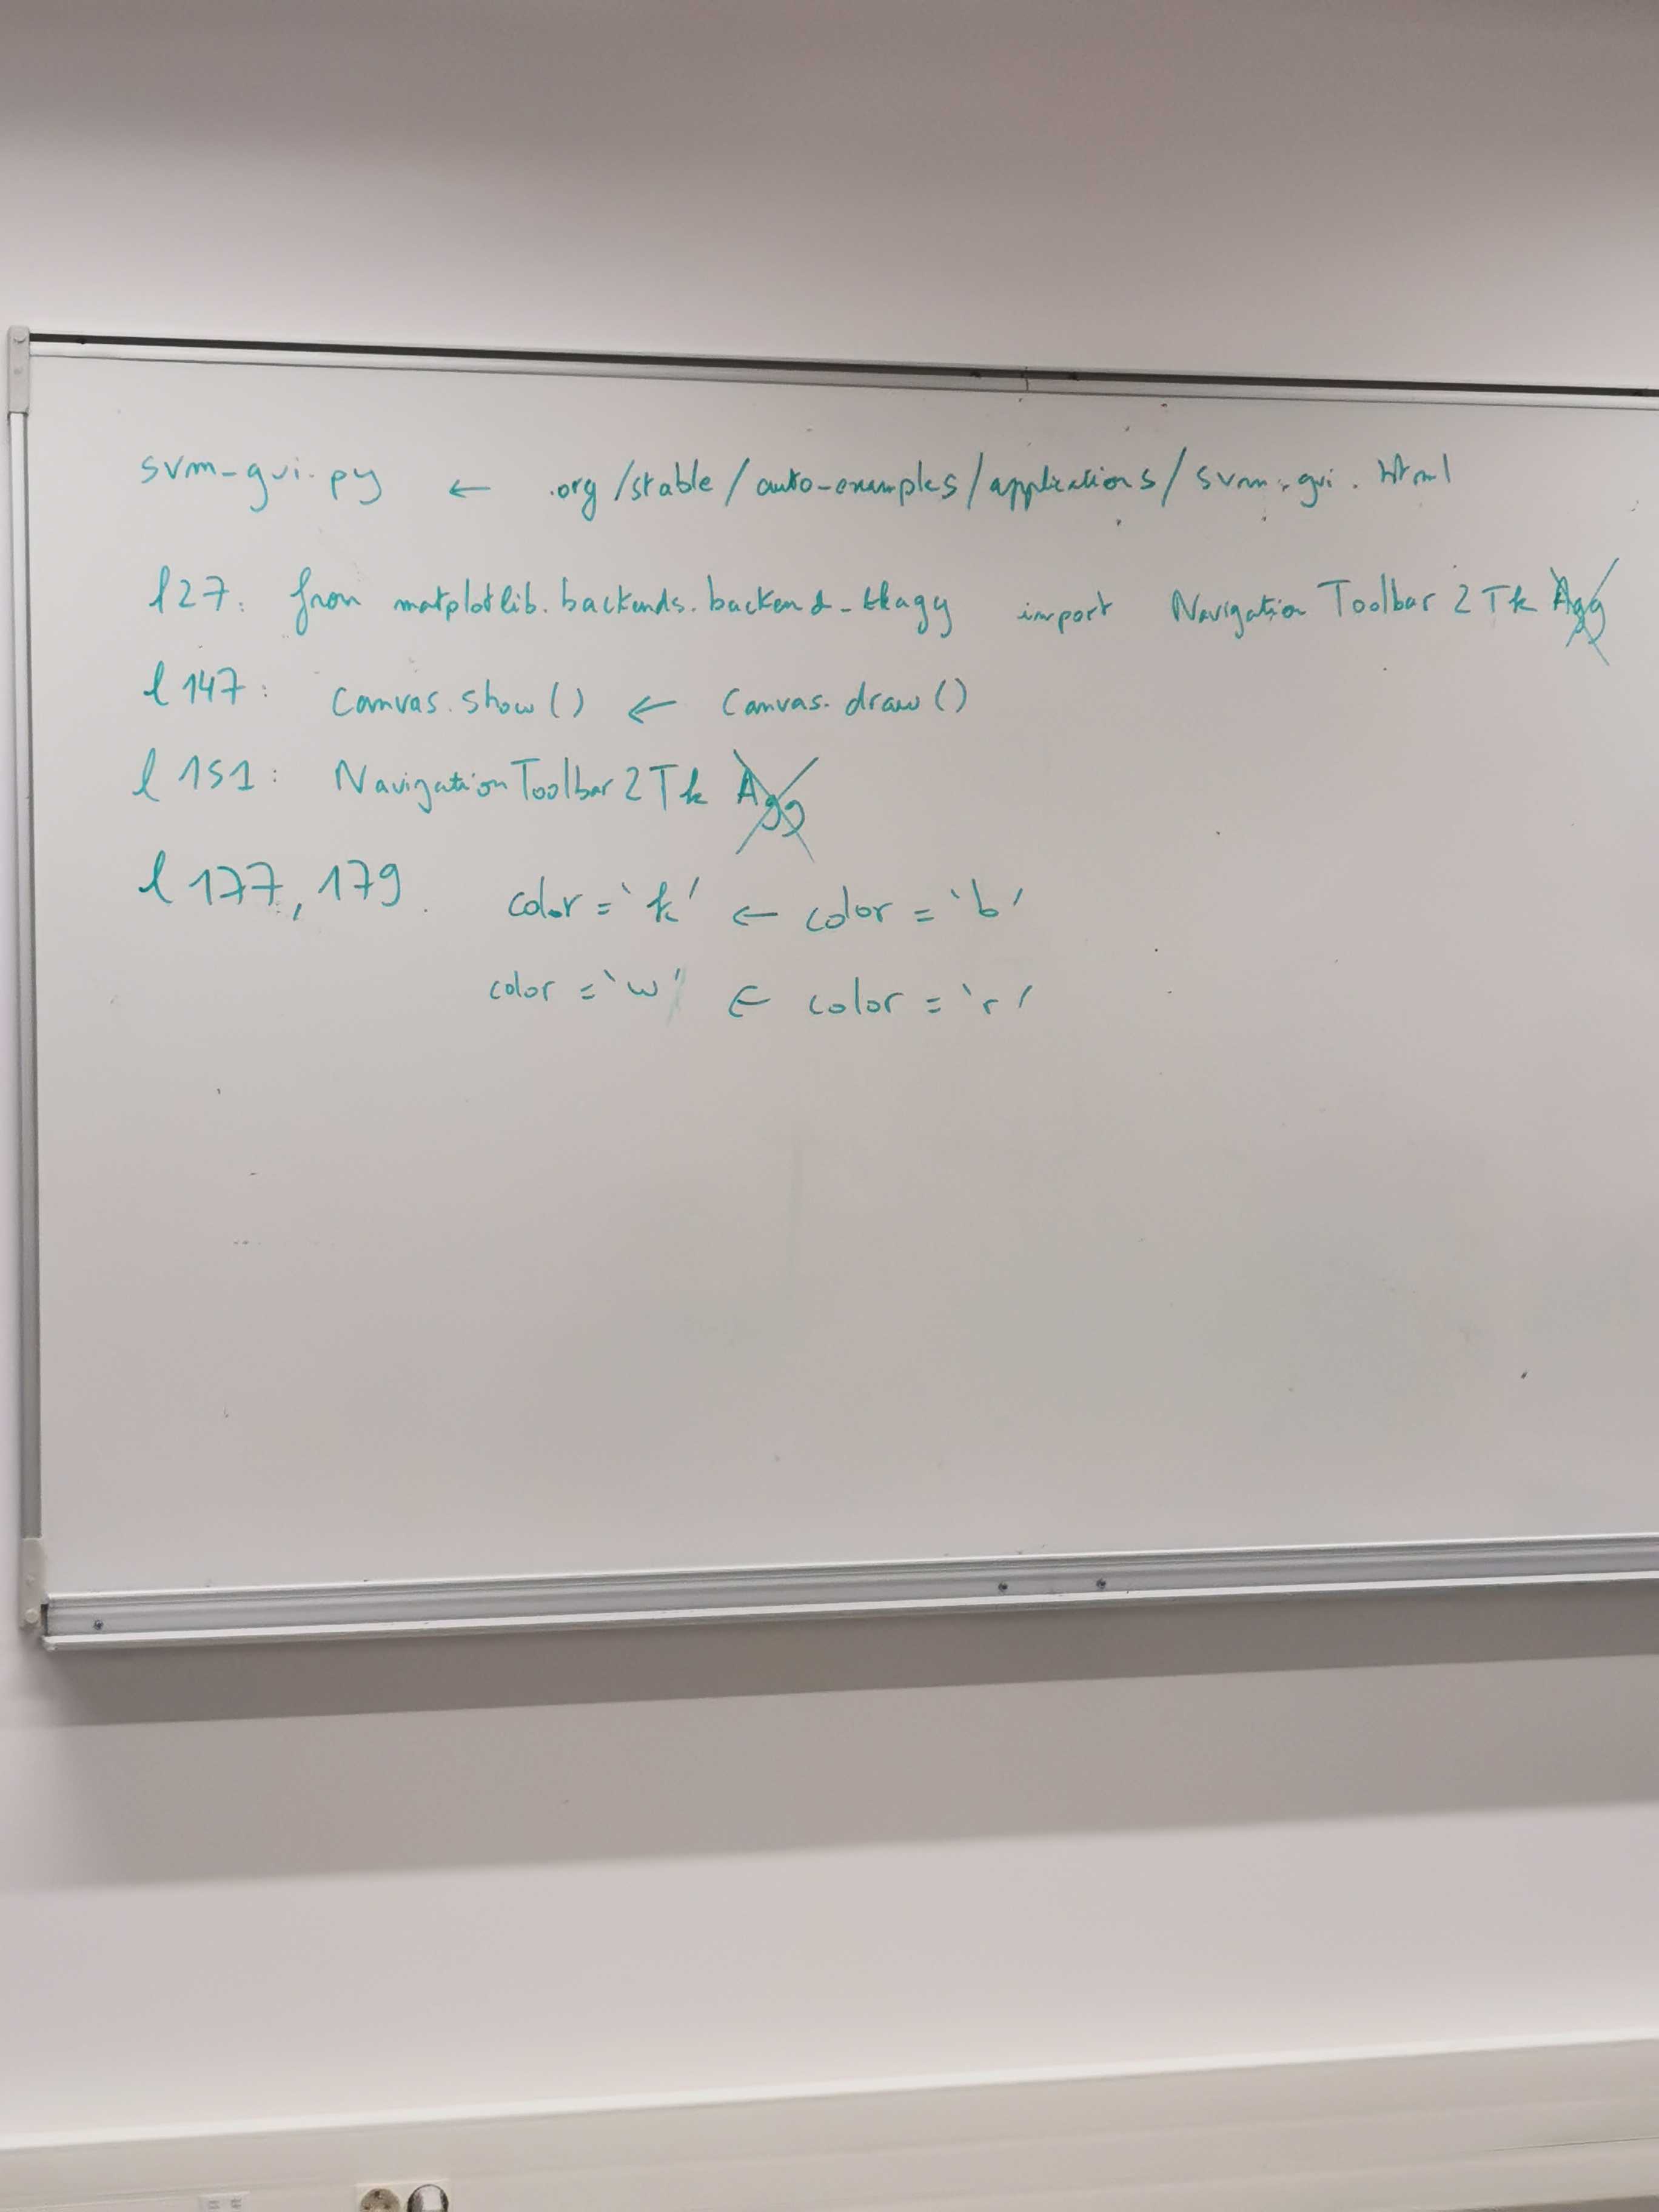 svm-gui.py ← .org/stable/auto-examples/applications/svm-gui.html
l27: from matplotlib.backends.backend_tkagg import NavigationToolbar2Tk Agg
l147: canvas.show() ← canvas.draw()
l151: NavigationToolbar2Tk Agg
l177, 179. color = 'k' ← color = 'b'
color = 'w' ← color = 'r'